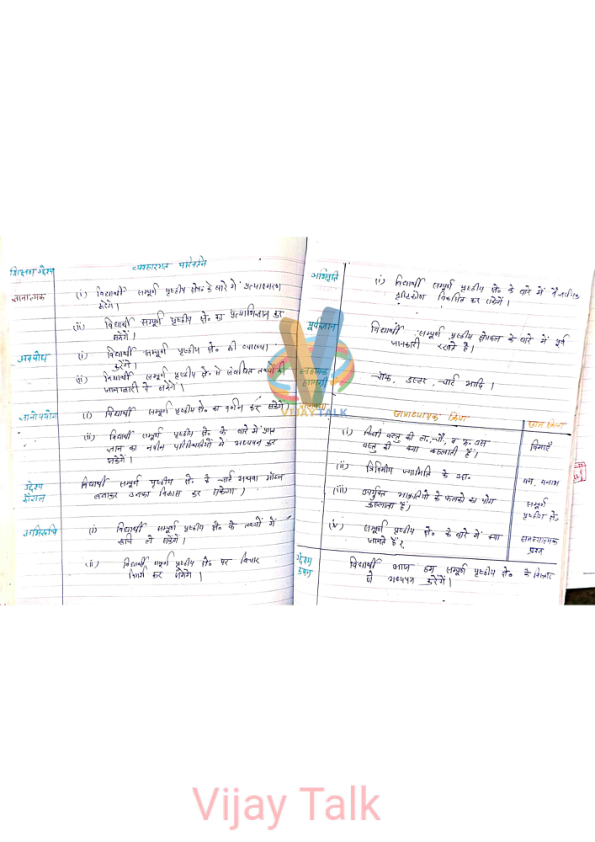 शिक्षण उद्देश्य
व्यवहारगत परिवर्तन
ज्ञानात्मक
(i) विद्यार्थी सम्पूर्ण पृष्ठीय क्षे० के बारे में प्रत्यास्मरण
करेंगे।
(ii) विद्यार्थी सम्पूर्ण पृष्ठीय क्षे० का प्रत्यभिज्ञान कर
सकेंगे।
अवबोध
(i) विद्यार्थी सम्पूर्ण पृष्ठीय क्षे० की व्याख्या
करेंगे।
(ii) विद्यार्थी सम्पूर्ण पृष्ठीय क्षे० से संबंधित तथ्यों की
जानकारी दे सकेंगे।
ज्ञानोपयोग
(i) विद्यार्थी सम्पूर्ण पृष्ठीय क्षे० का प्रयोग कर सकेंगे।
(ii) विद्यार्थी सम्पूर्ण पृष्ठीय क्षे० के बारे में प्राप्त
ज्ञान का नवीन परिस्थितियों में अध्ययन कर
सकेंगे।
कौशल
विद्यार्थी सम्पूर्ण पृष्ठीय क्षे० के चार्ट अथवा मॉडल
बनाकर उनका विकास कर सकेगा।
अभिरुचि
(i) विद्यार्थी सम्पूर्ण पृष्ठीय क्षे० के तथ्यों में
रुचि ले सकेंगे।
(ii) विद्यार्थी सम्पूर्ण पृष्ठीय क्षे० पर विचार
विमर्श कर सकेंगे।
अभिवृत्ति
(i) विद्यार्थी सम्पूर्ण पृष्ठीय क्षे० के बारे में वैज्ञानिक
दृष्टिकोण विकसित कर सकेंगे।
पूर्वज्ञान
विद्यार्थी सम्पूर्ण पृष्ठीय क्षेत्रफल के बारे में पूर्व
जानकारी रखते हैं।
सहायक
सामग्री
चॉक, डस्टर, चार्ट आदि।
VIJAY TALK
छात्राध्यापक क्रिया
छात्र क्रिया
(i) किसी वस्तु की ल०, चौ०, व ऊ० उस
वस्तु की क्या कहलाती हैं।
विमाएँ
(ii) त्रिविमीय ज्यामिति के उदा०
घन, घनाभ
(iii) उपर्युक्त आकृतियों के फलकों का योग
कहलाता है।
सम्पूर्ण
पृष्ठीय क्षे०
(iv) सम्पूर्ण पृष्ठीय क्षे० के बारे में क्या
जानते हैं?
समस्यात्मक
प्रश्न
उद्देश्य
कथन
विद्यार्थी आज हम सम्पूर्ण पृष्ठीय क्षे० के विस्तार
से अध्ययन करेंगे।
Vijay Talk